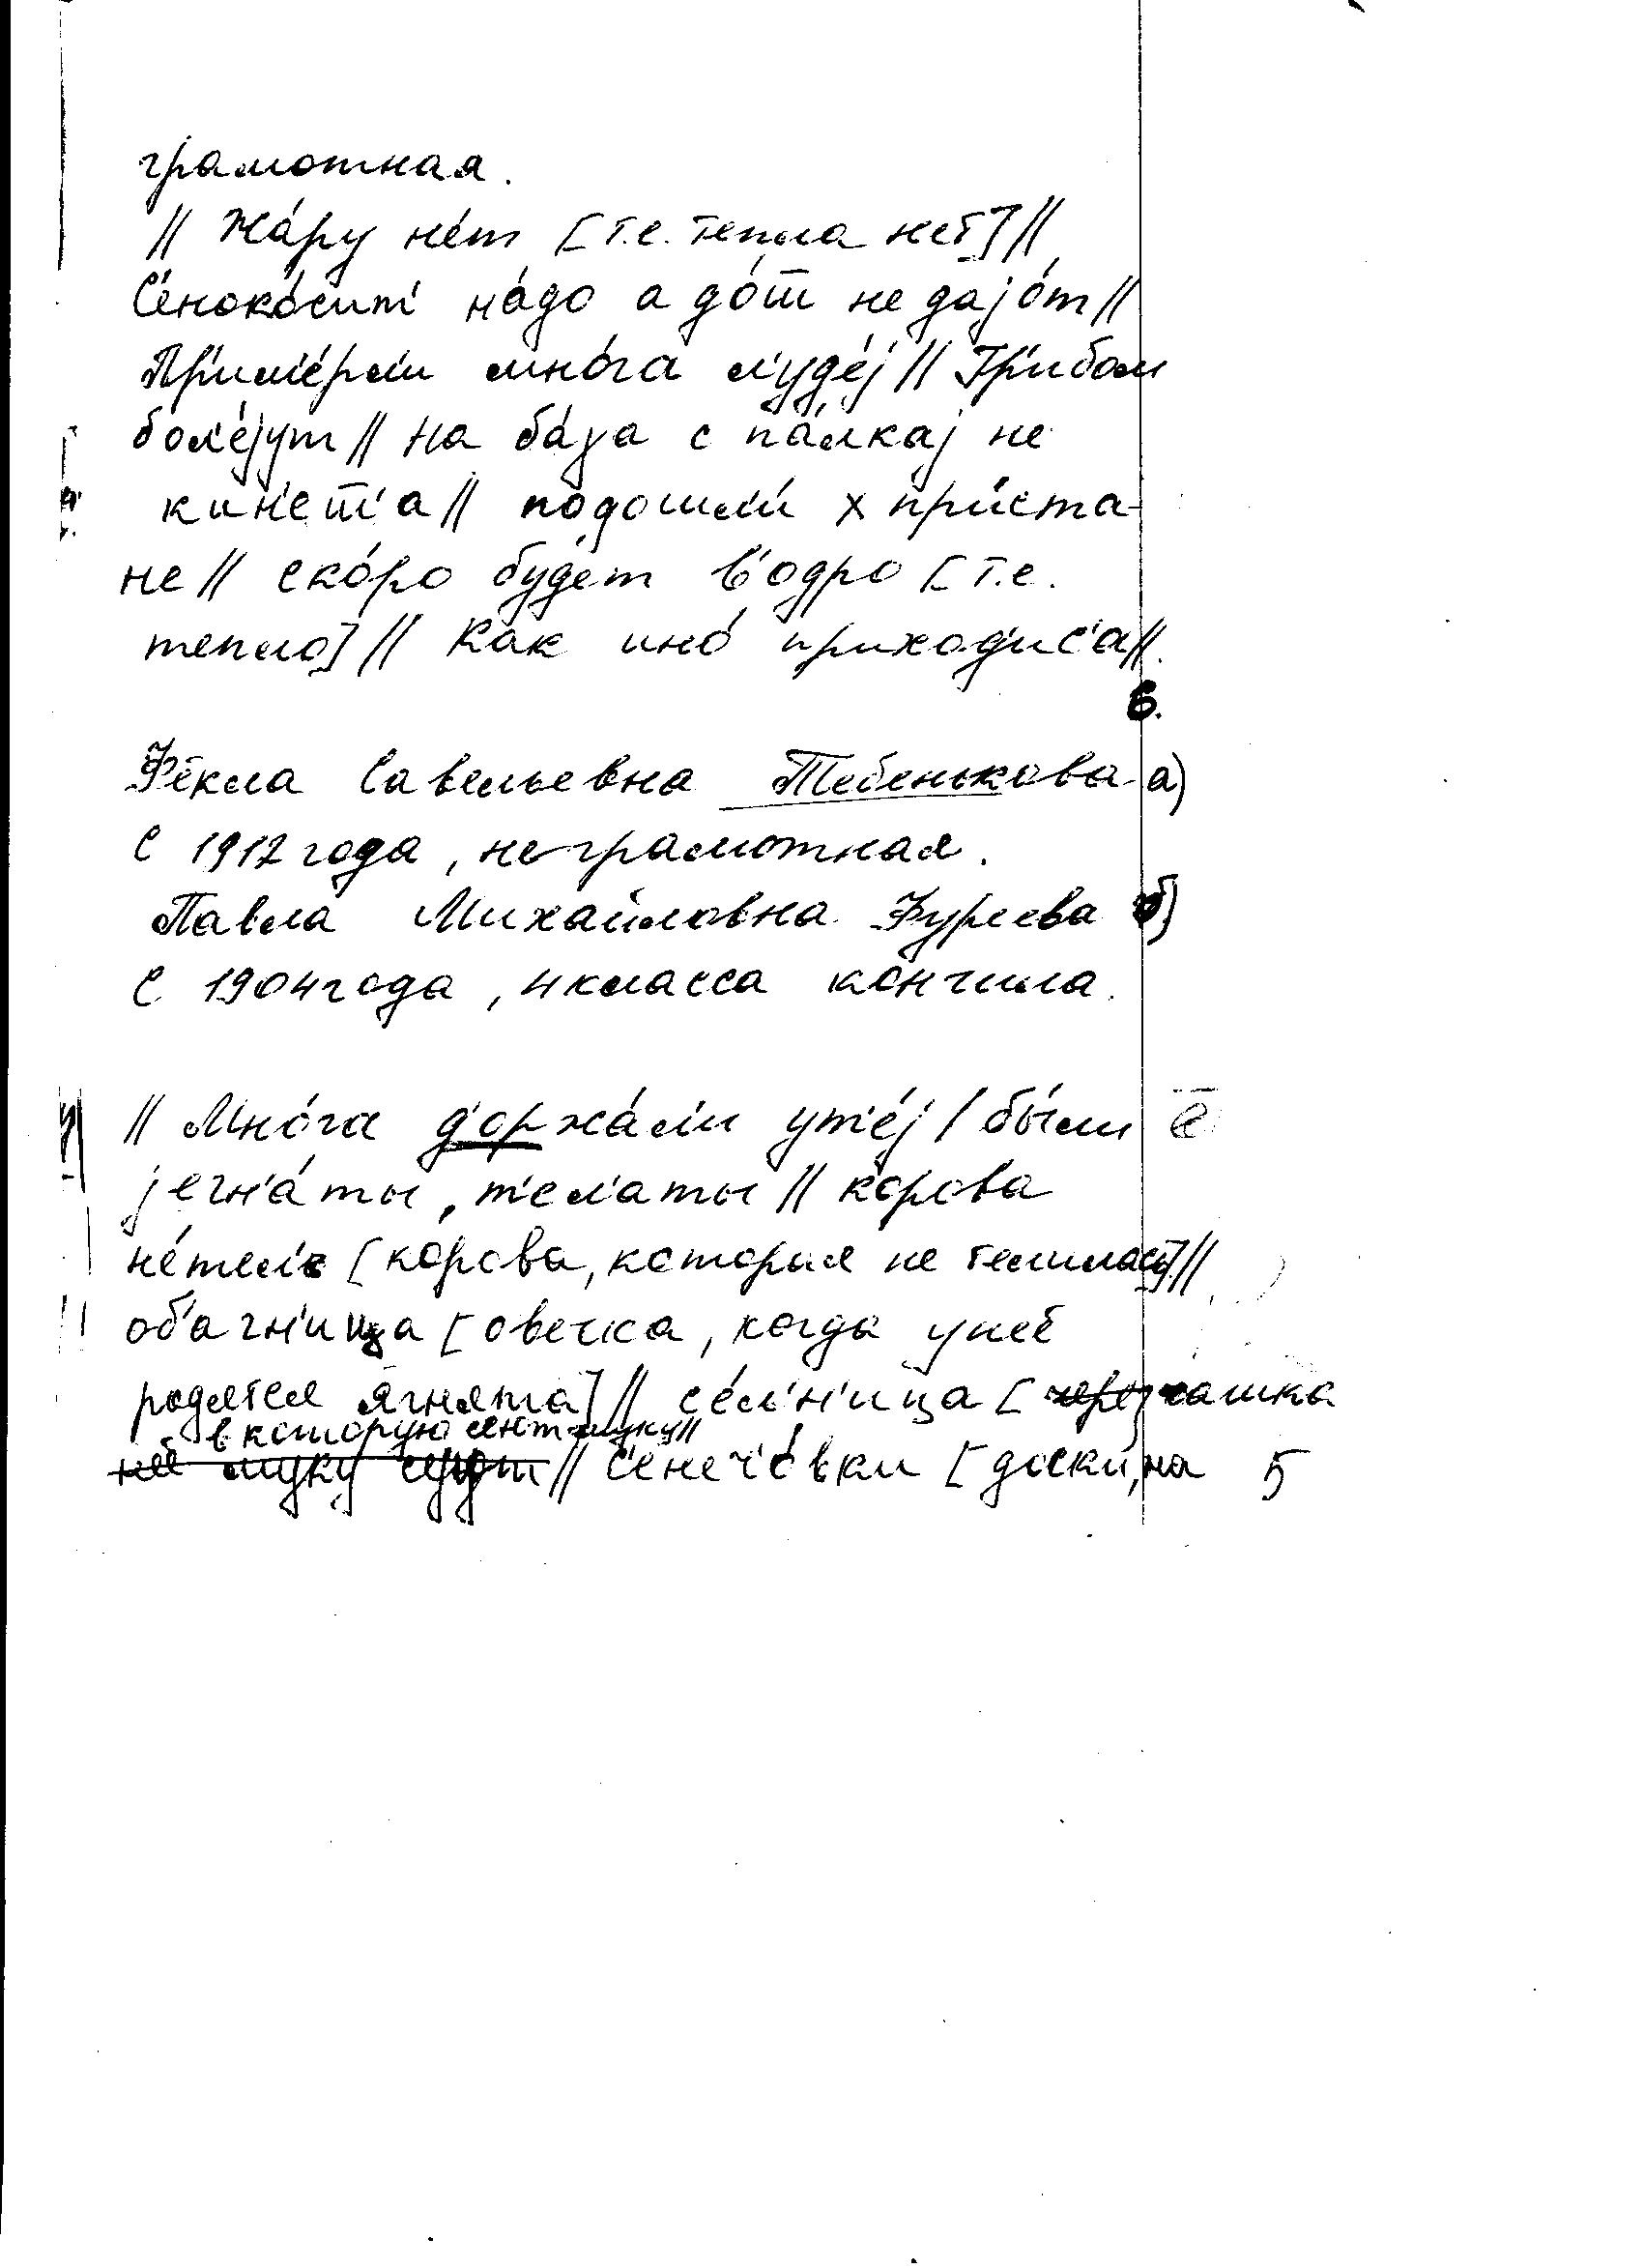 грамотная.
// Жа́ру не́т [т.е. тепла нет] //
С'еноко́сит' на́до а до́ш' не даjо́т //
Пр'им'е́рли мно́га л'уде́j // Гр'ибом
бол'е́jут // на ба́за с па́лкаj не
кин'еш'с'а // подошли́ х при́ста-
не // ско́ро бу́дет в'одро [т.е.
тепло] // Как ино́ приход'ис'а //
в.
Фёкла Савельевна Тебенькова а)
С 1912 года, неграмотная.
Павла Михайловна Фуреева б)
С 1904 года, 4 класса кончила.
// Мно́га д'оржа́ли ут'е́j / бы́ли е
jегн'а́ты, т'ел'аты // корова
не́тель [корова, которая не телилась] //
об'агн'ица [овечка, когда у неё
родятся ягнята] // се́л'н'ица [чашка
в которую сеют муку //
// с'енеч'о́вки [доски, на 5